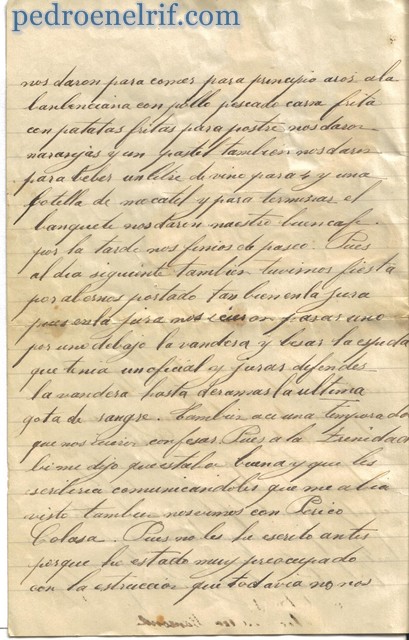 pedroenelrif.com
nos daron para comer para principio aros a la
banlenciana con pollo pescado carne frita
con patatas fritas para postre nos daron
naranjas y un pastel tambien nos daron
para beber un litre de vino para 4 y una
botella de mocatel y para termissar el
banquete nos daron nuestro buen cafe.
por la tarde nos fuimos de paseo. Pues
al dia seguiente tambien tuvimos fiesta
por abernos portado tan bien en la jura
pues en la jura nos icieron pasar uno
por uno debajo la vandera y besar la espada
que tenia un oficial y juras defendes
la vandera hasta deramas la ultima
gota de sangre. Tambien ace una temporada
que nos icieron confesar. Pues a la Trenidad
bi me dijo que estaba buena y que les
scriberia comunicandoles que me abia
visto tambien nos vimos con Perico
Colasa. Pues no les he escrito antes
porque he estado muy preocupado
con la estruccion que todavia no nos